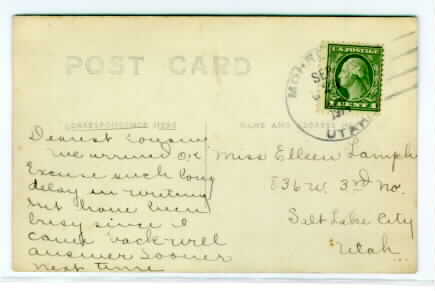 POST CARD
SEP
UTAH
U.S. POSTAGE
1 CENT 1
CORRESPONDENCE HERE
NAME AND ADDRESS HERE
Dearest Cousin
we arrived O.K.
Excuse such long
delay in writing
but have been
busy since I
came back will
answer sooner
next time
Miss Elleen Lamph
836 W. 3rd No.
Salt Lake City
Utah